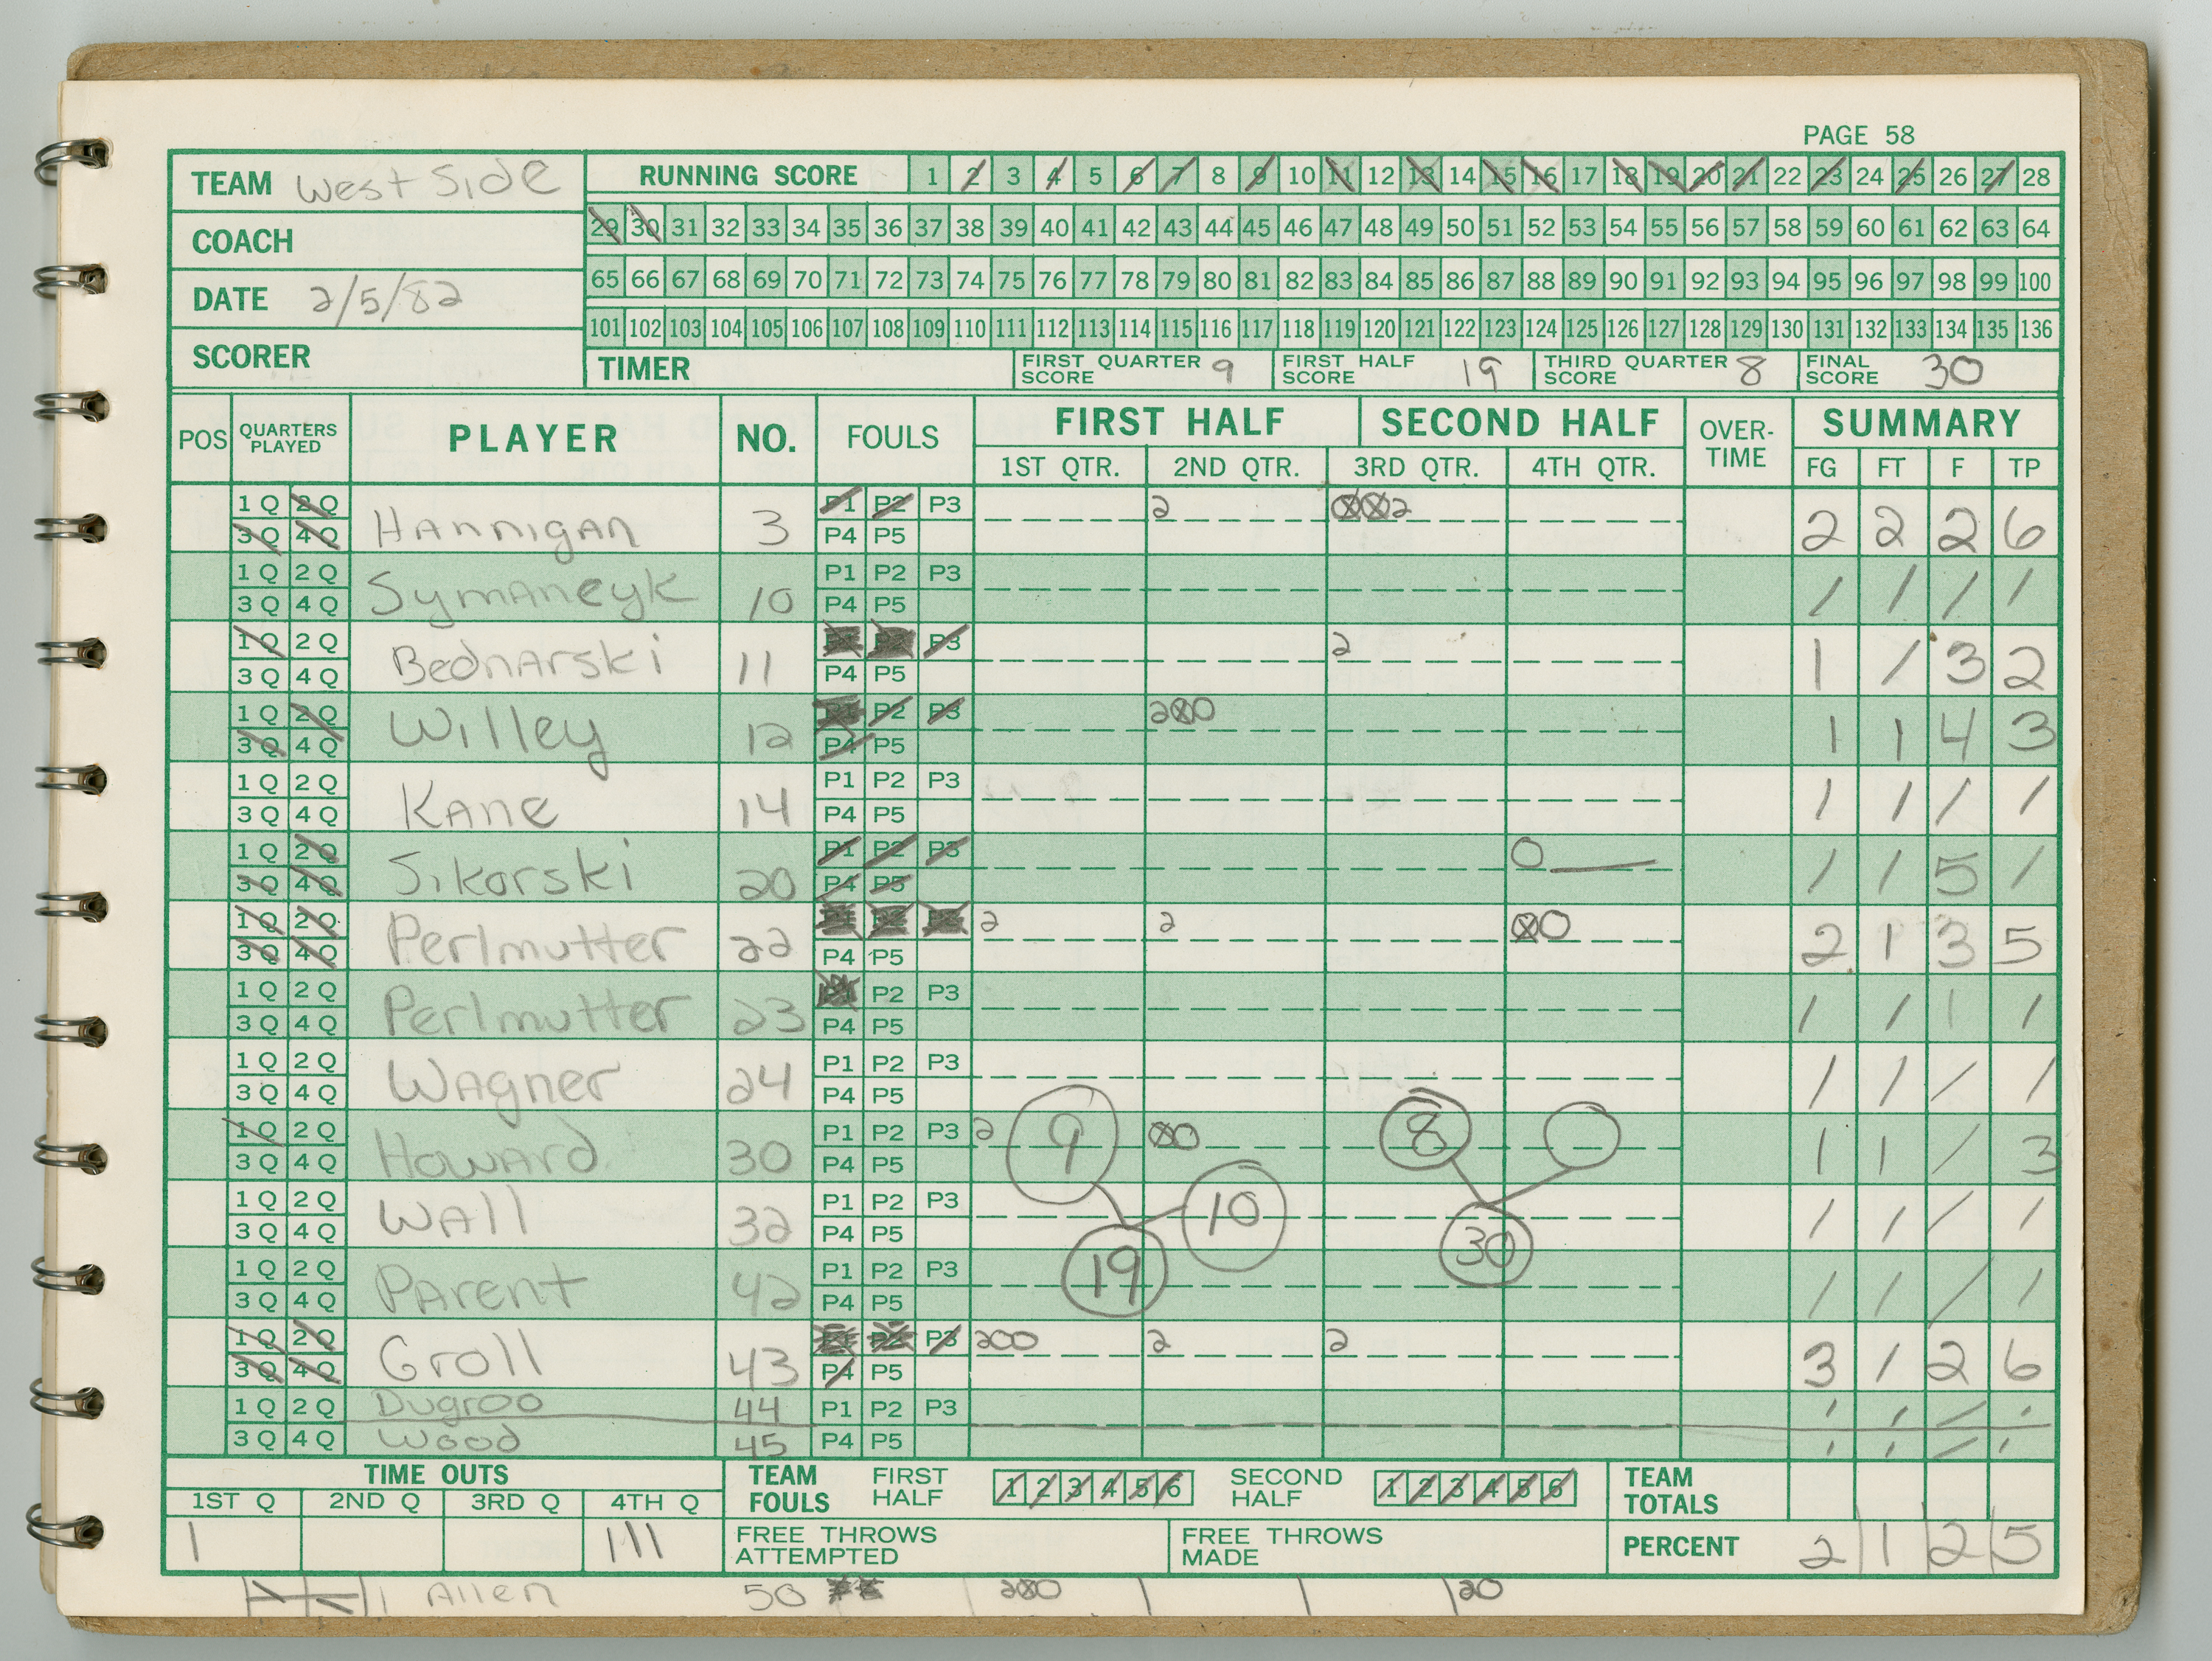 PAGE 58
TEAM West Side
COACH
DATE 2/5/82
SCORER
RUNNING SCORE 1 2 3 4 5 6 7 8 9 10 11 12 13 14 15 16 17 18 19 20 21 22 23 24 25 26 27 28
29 30 31 32 33 34 35 36 37 38 39 40 41 42 43 44 45 46 47 48 49 50 51 52 53 54 55 56 57 58 59 60 61 62 63 64
65 66 67 68 69 70 71 72 73 74 75 76 77 78 79 80 81 82 83 84 85 86 87 88 89 90 91 92 93 94 95 96 97 98 99 100
101 102 103 104 105 106 107 108 109 110 111 112 113 114 115 116 117 118 119 120 121 122 123 124 125 126 127 128 129 130 131 132 133 134 135 136
TIMER FIRST QUARTER SCORE 9 FIRST HALF SCORE 19 THIRD QUARTER SCORE 8 FINAL SCORE 30
POS QUARTERS PLAYED PLAYER NO. FOULS FIRST HALF SECOND HALF OVER-TIME SUMMARY
1ST QTR. 2ND QTR. 3RD QTR. 4TH QTR. FG FT F TP
1 Q 2 Q P1 P2 P3 2 2
3 Q 4 Q Hannigan 3 P4 P5 2 2 2 6
1 Q 2 Q P1 P2 P3
3 Q 4 Q Symaneyk 10 P4 P5 / / / /
1 Q 2 Q P3 2
3 Q 4 Q Bednarski 11 P4 P5 1 / 3 2
1 Q 2 Q P2 P3 2
3 Q 4 Q Willey 12 P4 P5 1 1 4 3
1 Q 2 Q P1 P2 P3
3 Q 4 Q Kane 14 P4 P5 / / / /
1 Q 2 Q P1 P2 P3 O
3 Q 4 Q Sikorski 20 P4 P5 / / 5 /
1 Q 2 Q 2 2
3 Q 4 Q Perlmutter 22 P4 P5 2 1 3 5
1 Q 2 Q P2 P3
3 Q 4 Q Perlmutter 23 P4 P5 / / 1 /
1 Q 2 Q P1 P2 P3
3 Q 4 Q Wagner 24 P4 P5 / / / /
1 Q 2 Q P1 P2 P3 2 9 8
3 Q 4 Q Howard 30 P4 P5 1 1 / 3
1 Q 2 Q P1 P2 P3 10
3 Q 4 Q Wall 32 P4 P5 30 / / / /
1 Q 2 Q P1 P2 P3 19
3 Q 4 Q Parent 42 P4 P5 / / / /
1 Q 2 Q P3 200 2 2
3 Q 4 Q Groll 43 P4 P5 3 / 2 6
1 Q 2 Q Dugroo 44 P1 P2 P3 / / / /
3 Q 4 Q Wood 45 P4 P5 / / / /
TIME OUTS TEAM FOULS FIRST HALF 1 2 3 4 5 6 SECOND HALF 1 2 3 4 5 6 TEAM TOTALS
1ST Q 2ND Q 3RD Q 4TH Q
1 111 FREE THROWS ATTEMPTED FREE THROWS MADE PERCENT 2 1 2 5
Allen 50 20